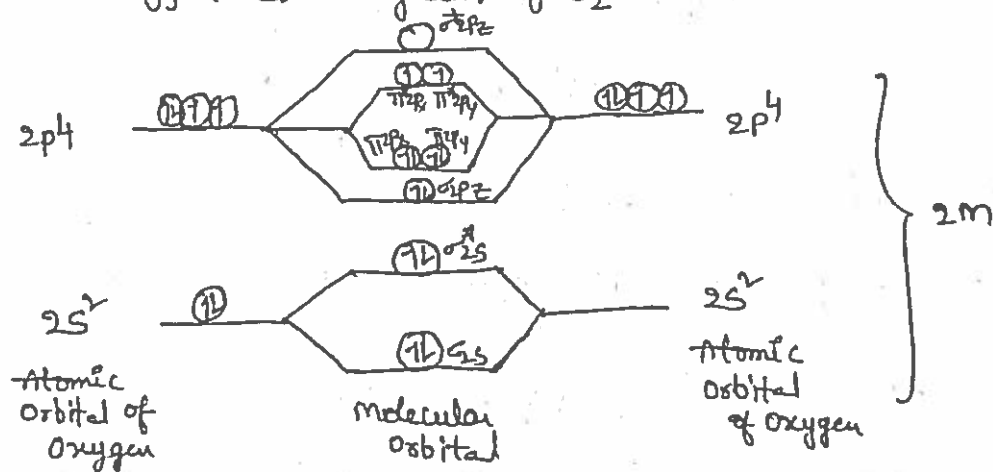 σ*2pz
π*2px π*2py
2p4
2p4
π2px π2py
σ2pz
2M
σ*2s
2s²
2s²
σ2s
Atomic
Orbital of
Oxygen
Molecular
Orbital
Atomic
Orbital
of Oxygen